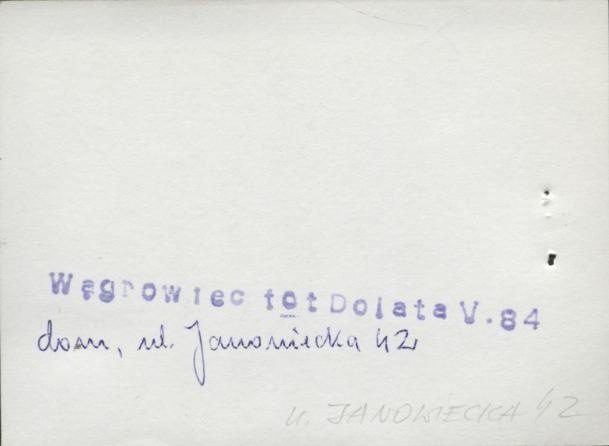 Wągrowiec fot Dolata V.84
dom, ul. Janowiecka 42
u. JANOWIECKA 42